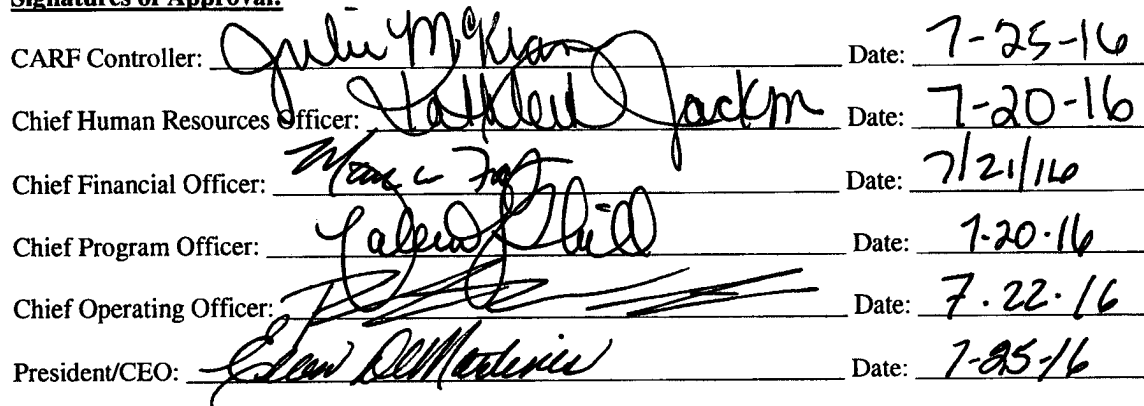 Signatures of Approval:
CARF Controller: Julie McKean Date: 7-25-16
Chief Human Resources Officer: Kathleen Jackm Date: 7-20-16
Chief Financial Officer: Date: 7/21/16
Chief Program Officer: Date: 7-20-16
Chief Operating Officer: Date: 7.22.16
President/CEO: DeMartinis Date: 7-25-16